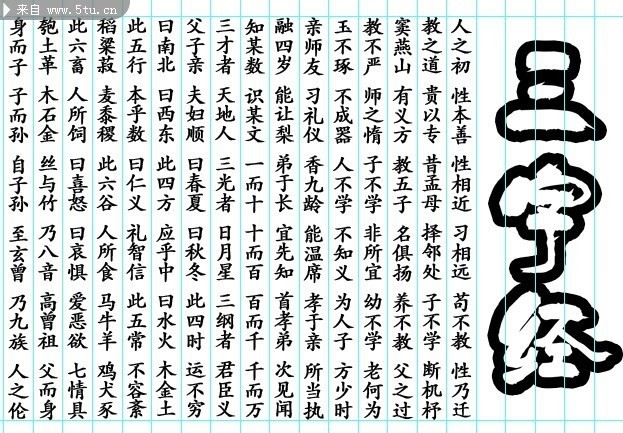 来自 www.5tu.cn
三字经
人之初 性本善 性相近 习相远 苟不教 性乃迁
教之道 贵以专 昔孟母 择邻处 子不学 断机杼
窦燕山 有义方 教五子 名俱扬 养不教 父之过
教不严 师之惰 子不学 非所宜 幼不学 老何为
玉不琢 不成器 人不学 不知义 为人子 方少时
亲师友 习礼仪 香九龄 能温席 孝于亲 所当执
融四岁 能让梨 弟于长 宜先知 首孝弟 次见闻
知某数 识某文 一而十 十而百 百而千 千而万
三才者 天地人 三光者 日月星 三纲者 君臣义
父子亲 夫妇顺 曰春夏 曰秋冬 此四时 运不穷
曰南北 曰西东 此四方 应乎中 曰水火 木金土
此五行 本乎数 曰仁义 礼智信 此五常 不容紊
稻梁菽 麦黍稷 此六谷 人所食 马牛羊 鸡犬豕
此六畜 人所饲 曰喜怒 曰哀惧 爱恶欲 七情具
匏土革 木石金 丝与竹 乃八音 高曾祖 父而身
身而子 子而孙 自子孙 至玄曾 乃九族 人之伦